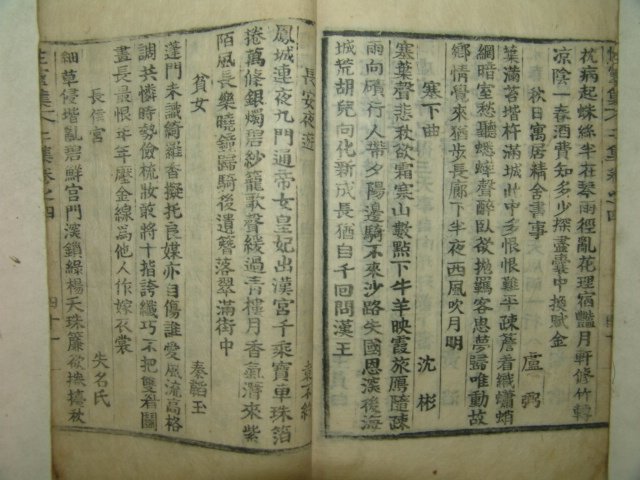 枕病起蛛絲半在琴雨徑亂花埋宿艷月軒修竹轉
凉陰一春酒費知多少探盡囊中換賦金
秋日寓居精舍書事　盧弼
葉滿苔堦杵滿城此中多恨恨難平疎簷看織蠨蛸
網暗室愁聽蟋蟀聲醉臥欲抛羇客思夢歸唯動故
鄉情覺來猶步長廊下半夜西風吹月明
塞下曲　沈彬
塞葉聲悲秋欲霜寒山數點下牛羊映霞旅鴈隨疎
雨向磧行人帶夕陽邊騎不來沙路失國恩深後海
城荒胡兒向化新成長猶自千回問漢王
長安夜遊　袁不約
鳳城連夜九門通帝女皇妃出漢宮千乘寶車珠箔
捲萬條銀燭碧紗籠歌聲緩過青樓月香氣潛來紫
陌風長樂曉鐘歸騎後遺簪落翠滿街中
貧女　秦韜玉
蓬門未識綺羅香擬托良媒亦自傷誰愛風流高格
調共憐時勢儉梳妝敢將十指誇纖巧不把雙眉鬪
畫長最恨年年壓金線為他人作嫁衣裳
長信宮　失名氏
細草侵堦亂碧鮮宮門深鎖綠楊天珠簾欲捲擡秋